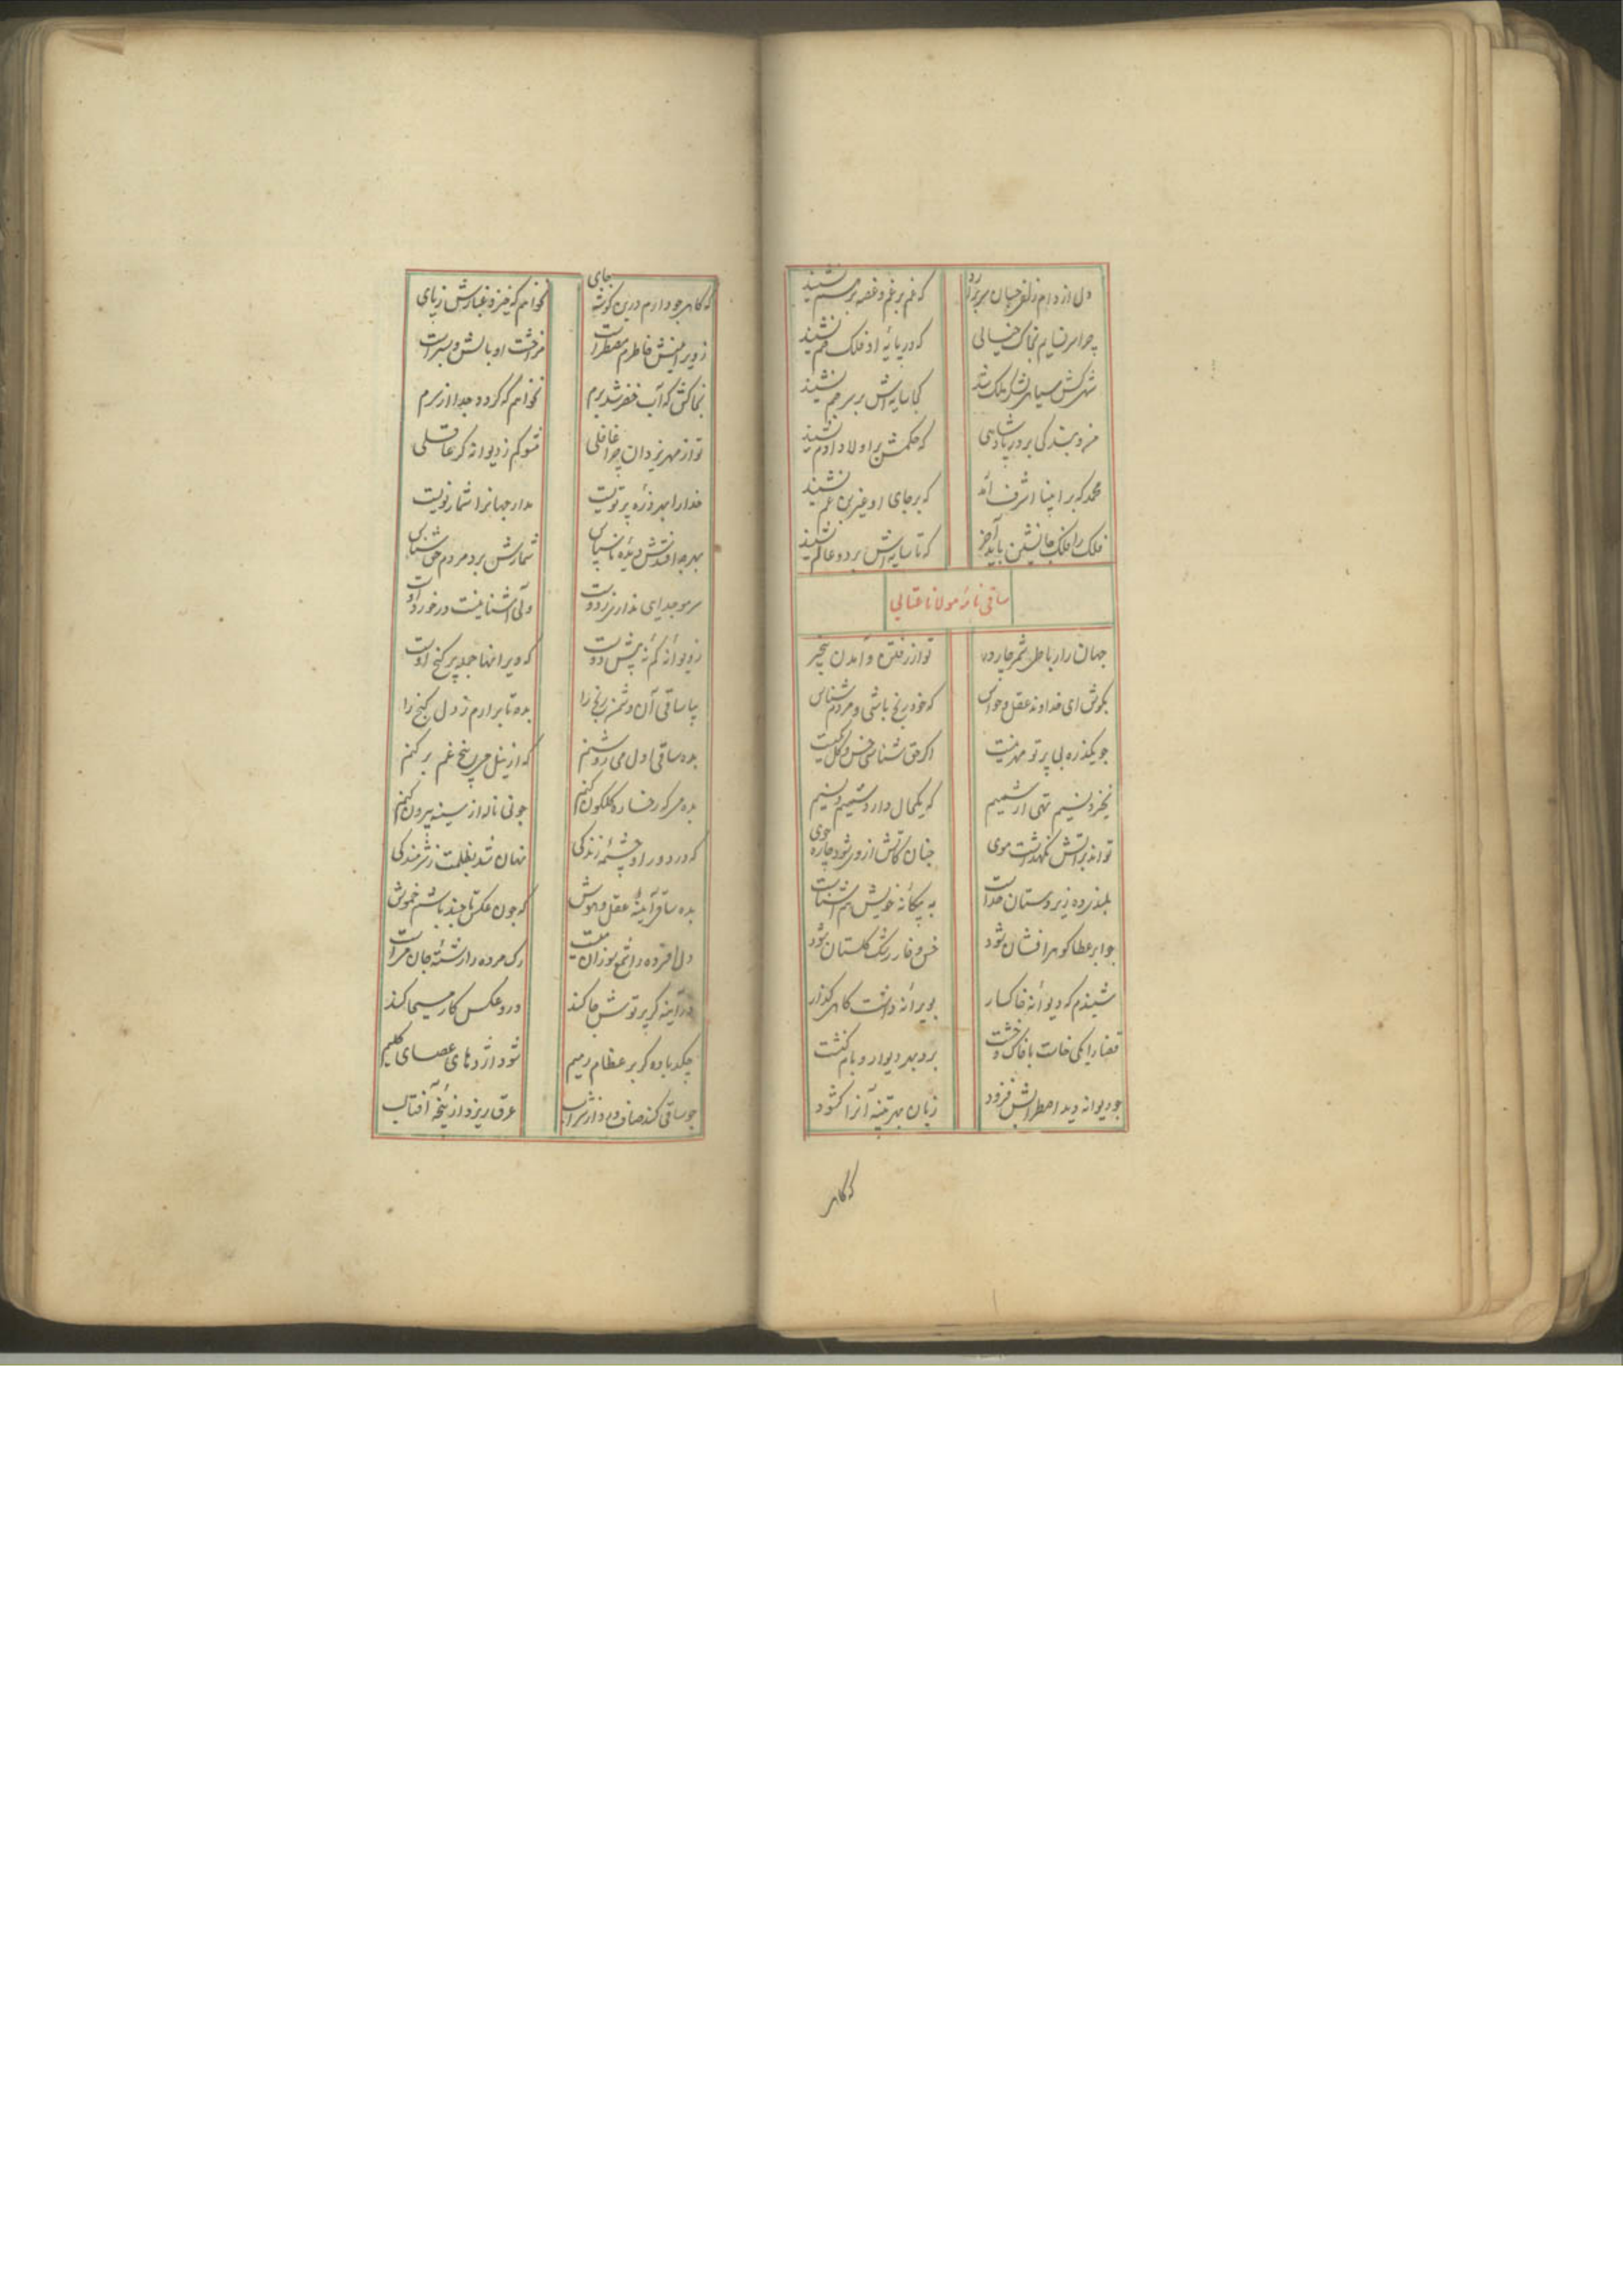 دل از دام زلف جهان سر برآرد
که غم بر غم و غصه بر هم نشیند
چرا سر نسایم بخاک خیالی
که در پایهٔ او فلک خم نشیند
کجا سایه‌اش بر سر جم نشیند
من و بندگی بر در پادشاهی
که حکمش بر اولاد آدم نشیند
محمد که بر انبیا اشرف آمد
که بر جای او غیر ابن عم نشیند
فلک را ملک جانشین باید آخر
که تا سایه‌اش بر دو عالم نشیند
ساقی نامهٔ مولانا عتابی
جهان را رباطی شمر چار در
تو از رفتن و آمدن بیخبر
بکوش ای خداوند عقل و حواس
که خود رنج باشی و مردم شناس
چو یکذره بی پرتو مهر نیست
اگر حق شناسی خس و گل یکیست
نخیزد نسیم تهی از شمیم
که یکحال دارد شمیم و نسیم
تواند بر آتش نگهداشت موی
چنان کاتش از وی شود چاره جوی
بلند از ره زیردستان خداست
به بیگانه خویش هم آشناست
چو ابر عطا گوهر افشان شود
خس و خار رشک گلستان شود
شنیدم که دیوانهٔ خاکسار
بویرانه داشت گاهی گذار
قضا را یکی خاست با خاک و خشت
برد بهر دیوار و بام کنشت
چو دیوانه دید اضطرابش فزود
زبان بهر تنبیه آنرا گشود
که گاهی
که گاهی چو دارم درین گوشه جای
نخواهم که خیزد غبارش ز پای
ز ویرانیش خاطرم مضطر است
مرا خشت او بالش و بستر است
بخاکش که آب خضر شد برم
نخواهم که گردد جدا از سرم
تو از مهر یزدان چرا غافلی
مشو کم ز دیوانه گر عاقلی
خدا را بهر ذره پرتویست
مدار جهانرا شمار نویست
بهر چه افتدش دیدهٔ ناسپاس
شمارش برد مردم حق شناس
سر مو جدایی ندارد ز دوست
ولی آشنا نیست در خورد اوست
ز دیوانه کم نه‌ئی پیش دوست
که ویرانها جمله پر گنج اوست
بیا ساقی آن دشمن رنج را
بده تا برآرم ز دل گنج را
بده ساقی اول می روشنم
که از نیل می بیخ غم بر کنم
بده می که رخساره گلگون کنم
چو نی ناله از سینه بیرون کنم
که در دور او چشمهٔ زندگی
نهان شد بظلمت ز شرمندگی
بده ساقی آیینهٔ عقل و هوش
که چون عکس تا چند باشم خموش
رگ مرده را رشتهٔ جان مراست
در آیینه گر پرتوش جا کند
درو عکس کار مسیحا کند
چکد باده گر بر عظام رمیم
شود اژدهای عصای کلیم
چو ساقی کند صاف در دور شراب
عرق ریزد از پنجهٔ آفتاب